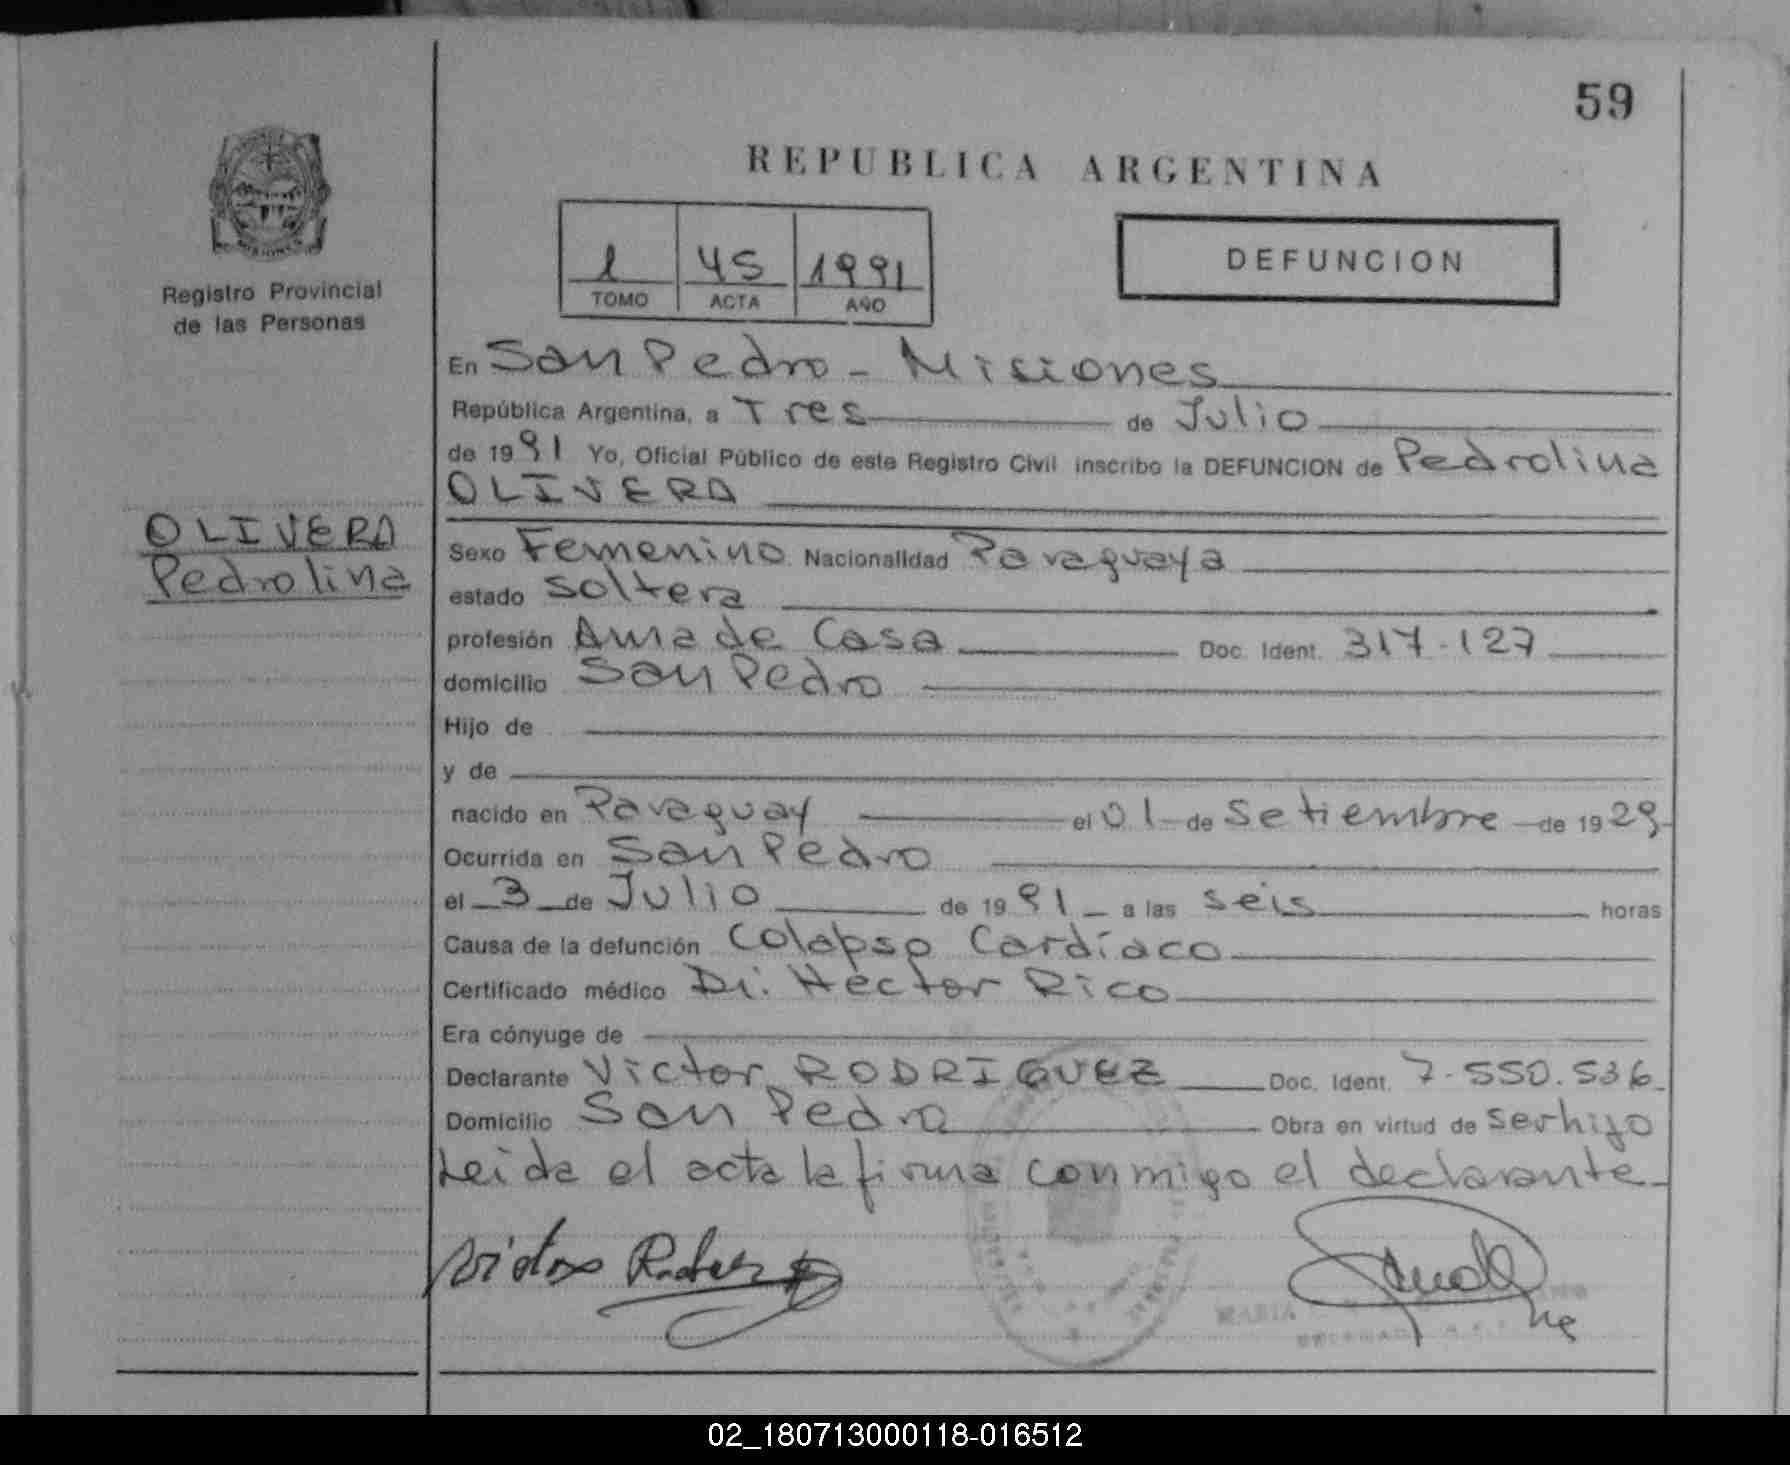 59
REPUBLICA ARGENTINA
1 45 1991
TOMO ACTA AÑO
DEFUNCION
Registro Provincial
de las Personas
OLIVERA
Pedrolina
En San Pedro - Misiones
República Argentina, a Tres de Julio
de 1991 Yo, Oficial Público de este Registro Civil inscribo la DEFUNCION de Pedrolina
OLIVERA
Sexo Femenino Nacionalidad Paraguaya
estado Soltera
profesión Ama de Casa Doc. Ident. 317-127
domicilio San Pedro
Hijo de
y de
nacido en Paraguay el 01 de Setiembre de 1929
Ocurrida en San Pedro
el 3 de Julio de 1991 a las seis horas
Causa de la defunción Colapso Cardíaco
Certificado médico Dr. Hector Rico
Era cónyuge de
Declarante Victor RODRIGUEZ Doc. Ident. 7.550.536
Domicilio San Pedro Obra en virtud de ser hijo
Leida el acta la firma conmigo el declarante
MARIA
02_180713000118-016512